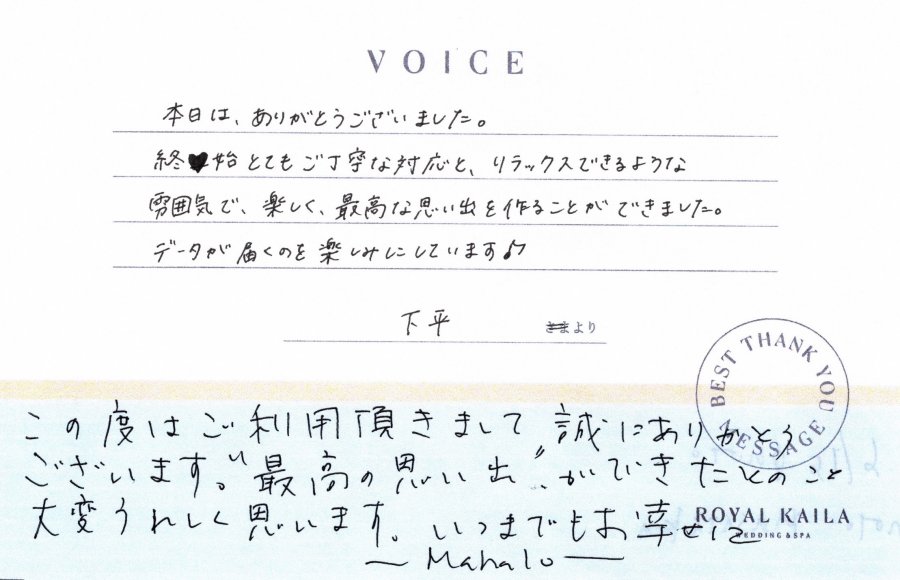 VOICE
本日は、ありがとうございました。
終始とてもご丁寧な対応と、リラックスできるような
雰囲気で、楽しく、最高な思い出を作ることができました。
データが届くのを楽しみにしています♪
下平 さまより
BEST THANK YOU MESSAGE
この度はご利用頂きまして誠にありがとう
ございます。"最高の思い出"ができたとのこと
大変うれしく思います。いつまでもお幸せに
ROYAL KAILA
WEDDING & SPA
—Mahalo—